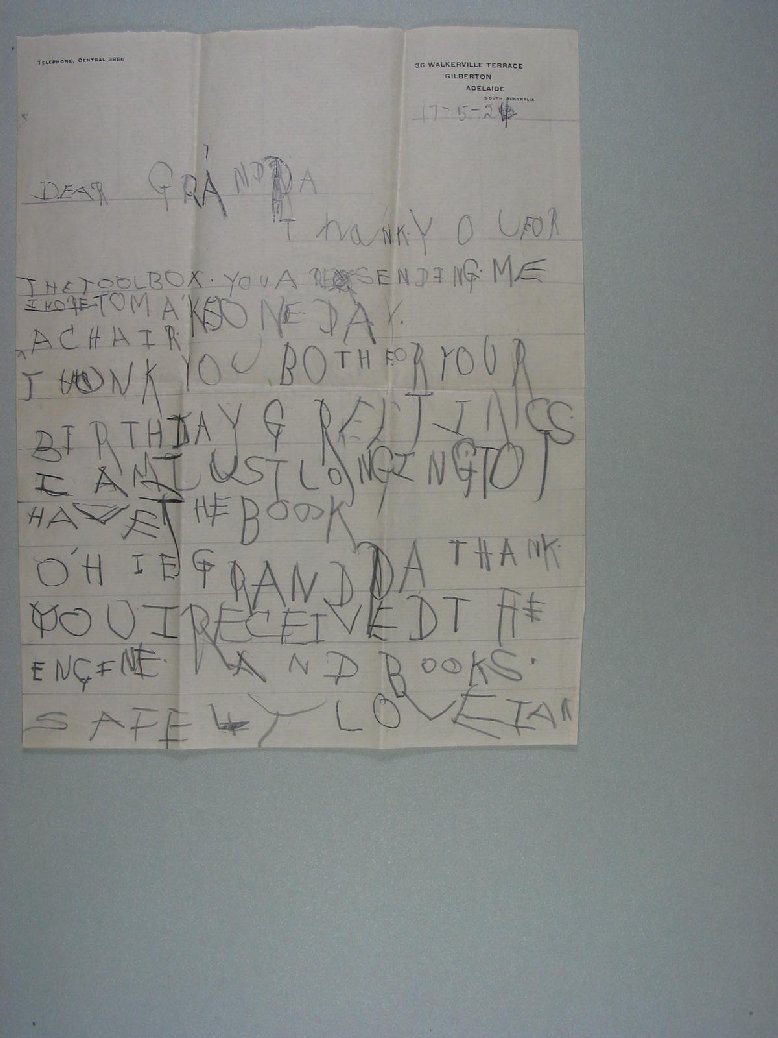 TELEPHONE, CENTRAL
36 WALKERVILLE TERRACE
GILBERTON
ADELAIDE
SOUTH AUSTRALIA
17-5-2
DEAR GRANDDA
THANKYOU FOR
THE TOOLBOX. YOU A SENDING ME
I HOPE TO MAKE ONE DAY.
A CHAIR
THONK YOU BOTH FOR YOUR
BIRTHDAY GREETINGS
I AM JUST LONGING TO
HAVE THE BOOK
O'H IE GRANDDA THANK
YOU I RECEIVED THE
ENGENE AND BOOKS.
SAFELY LOVE IAN